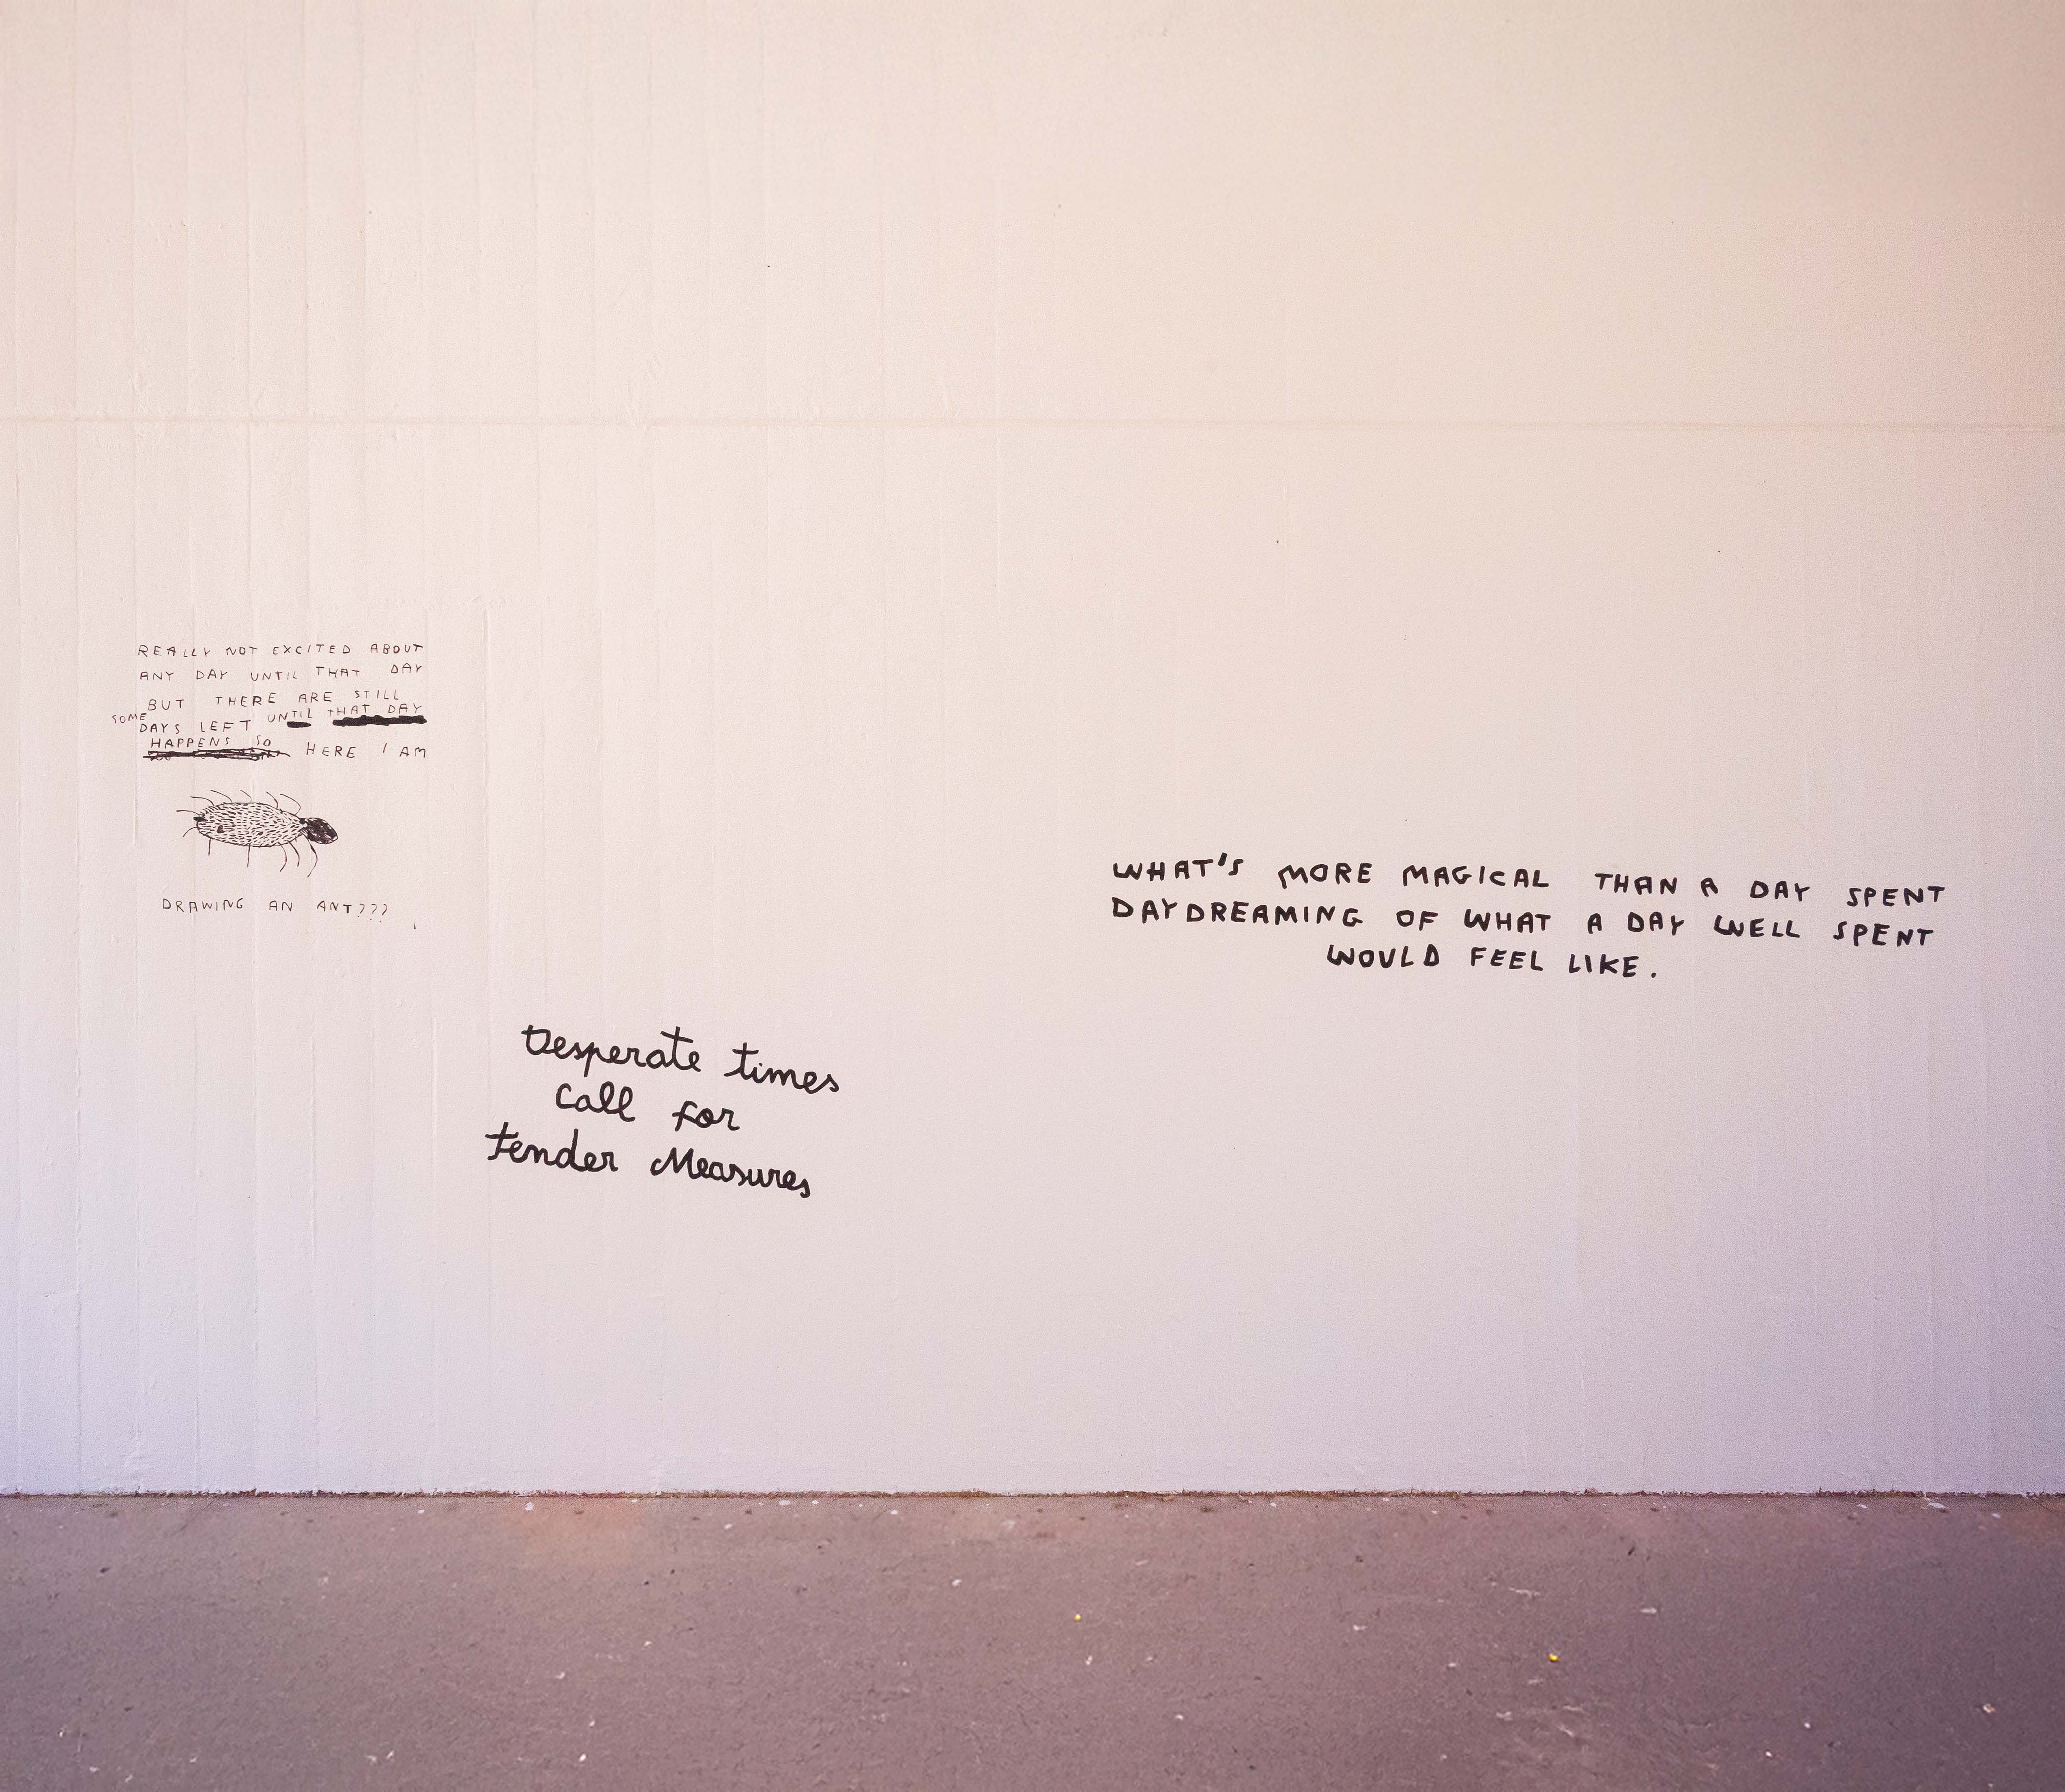 REALLY NOT EXCITED ABOUT
ANY DAY UNTIL THAT DAY
BUT THERE ARE STILL
SOME DAYS LEFT UNTIL THAT DAY
HAPPENS SO HERE I AM
DRAWING AN ANT???
Desperate times
call for
tender Measures
WHAT'S MORE MAGICAL THAN A DAY SPENT
DAYDREAMING OF WHAT A DAY WELL SPENT
WOULD FEEL LIKE.